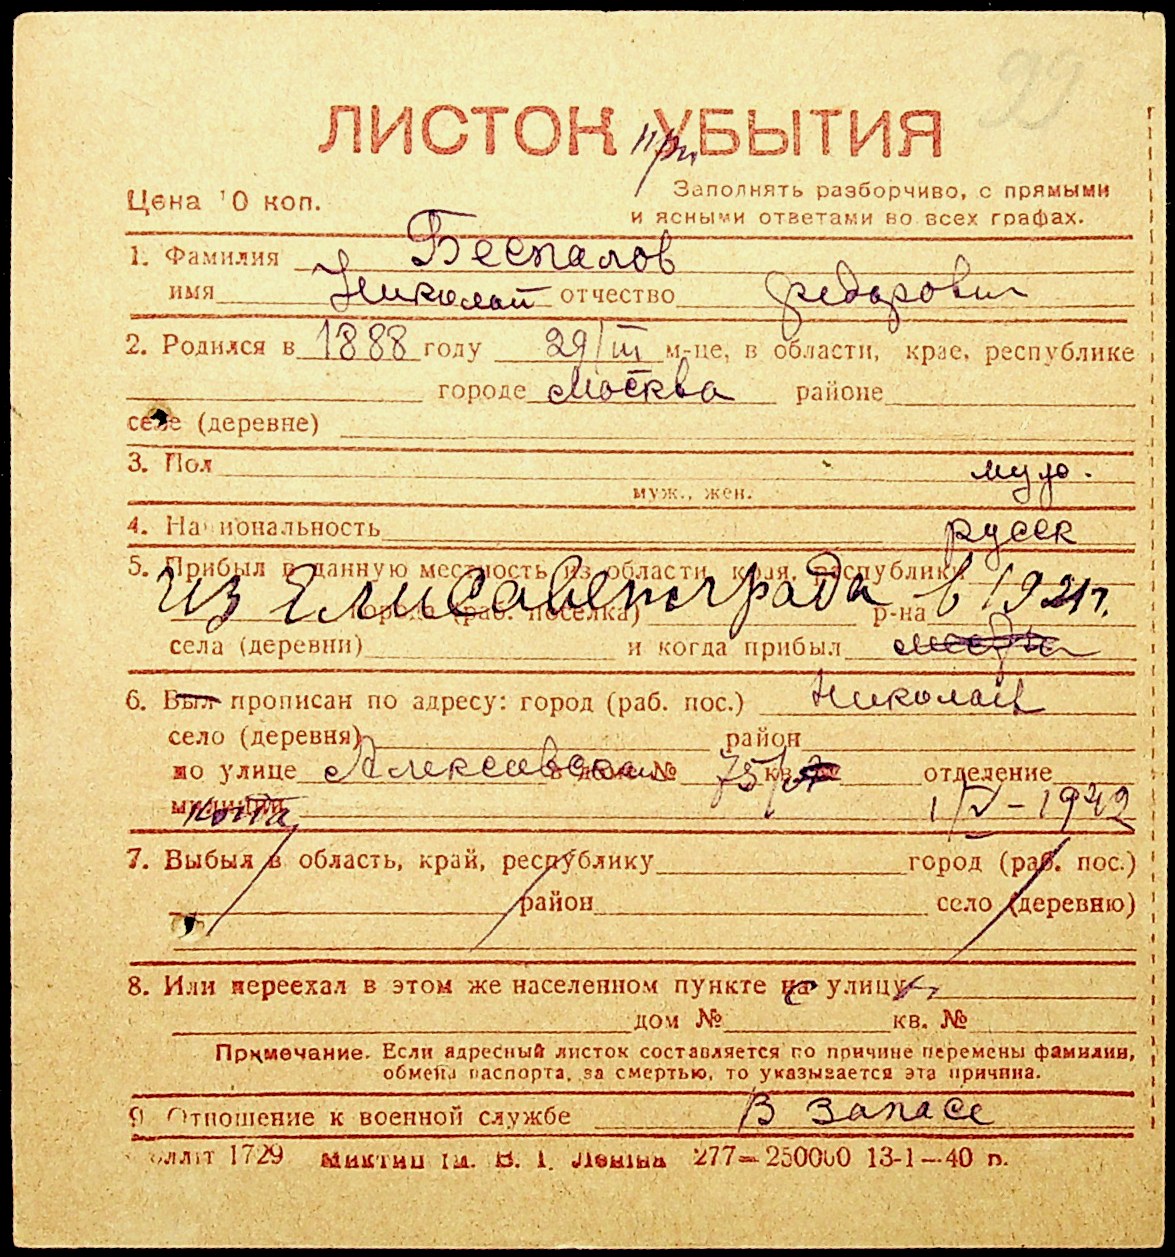 99
ЛИСТОК при УБЫТИЯ
Цена 10 коп.
Заполнять разборчиво, с прямыми
и ясными ответами во всех графах.
1. Фамилия Беспалов
имя Николай отчество Федорович
2. Родился в 1888 году 29/III м-це, в области, крае, республике
городе Москва районе
селе (деревне)
3. Пол муж.
муж., жен.
4. Национальность русск
5. Прибыл в данную местность из области, края, республики
из Елисаветограда в 1921 г.
города (раб. поселка) р-на
села (деревни) и когда прибыл
6. Был прописан по адресу: город (раб. пос.) Николаев
село (деревня) район
по улице Алексеевская в доме № 75/ кв. отделение
милиции 1/V-1942
7. Выбыл в область, край, республику город (раб. пос.)
район село (деревню)
8. Или переехал в этом же населенном пункте на с улицу
дом № кв. №
Примечание. Если адресный листок составляется по причине перемены фамилии,
обмена паспорта, за смертью, то указывается эта причина.
9. Отношение к военной службе В запасе
1729 Миктип ім. В. І. Леніна 277—250000 13-1—40 р.